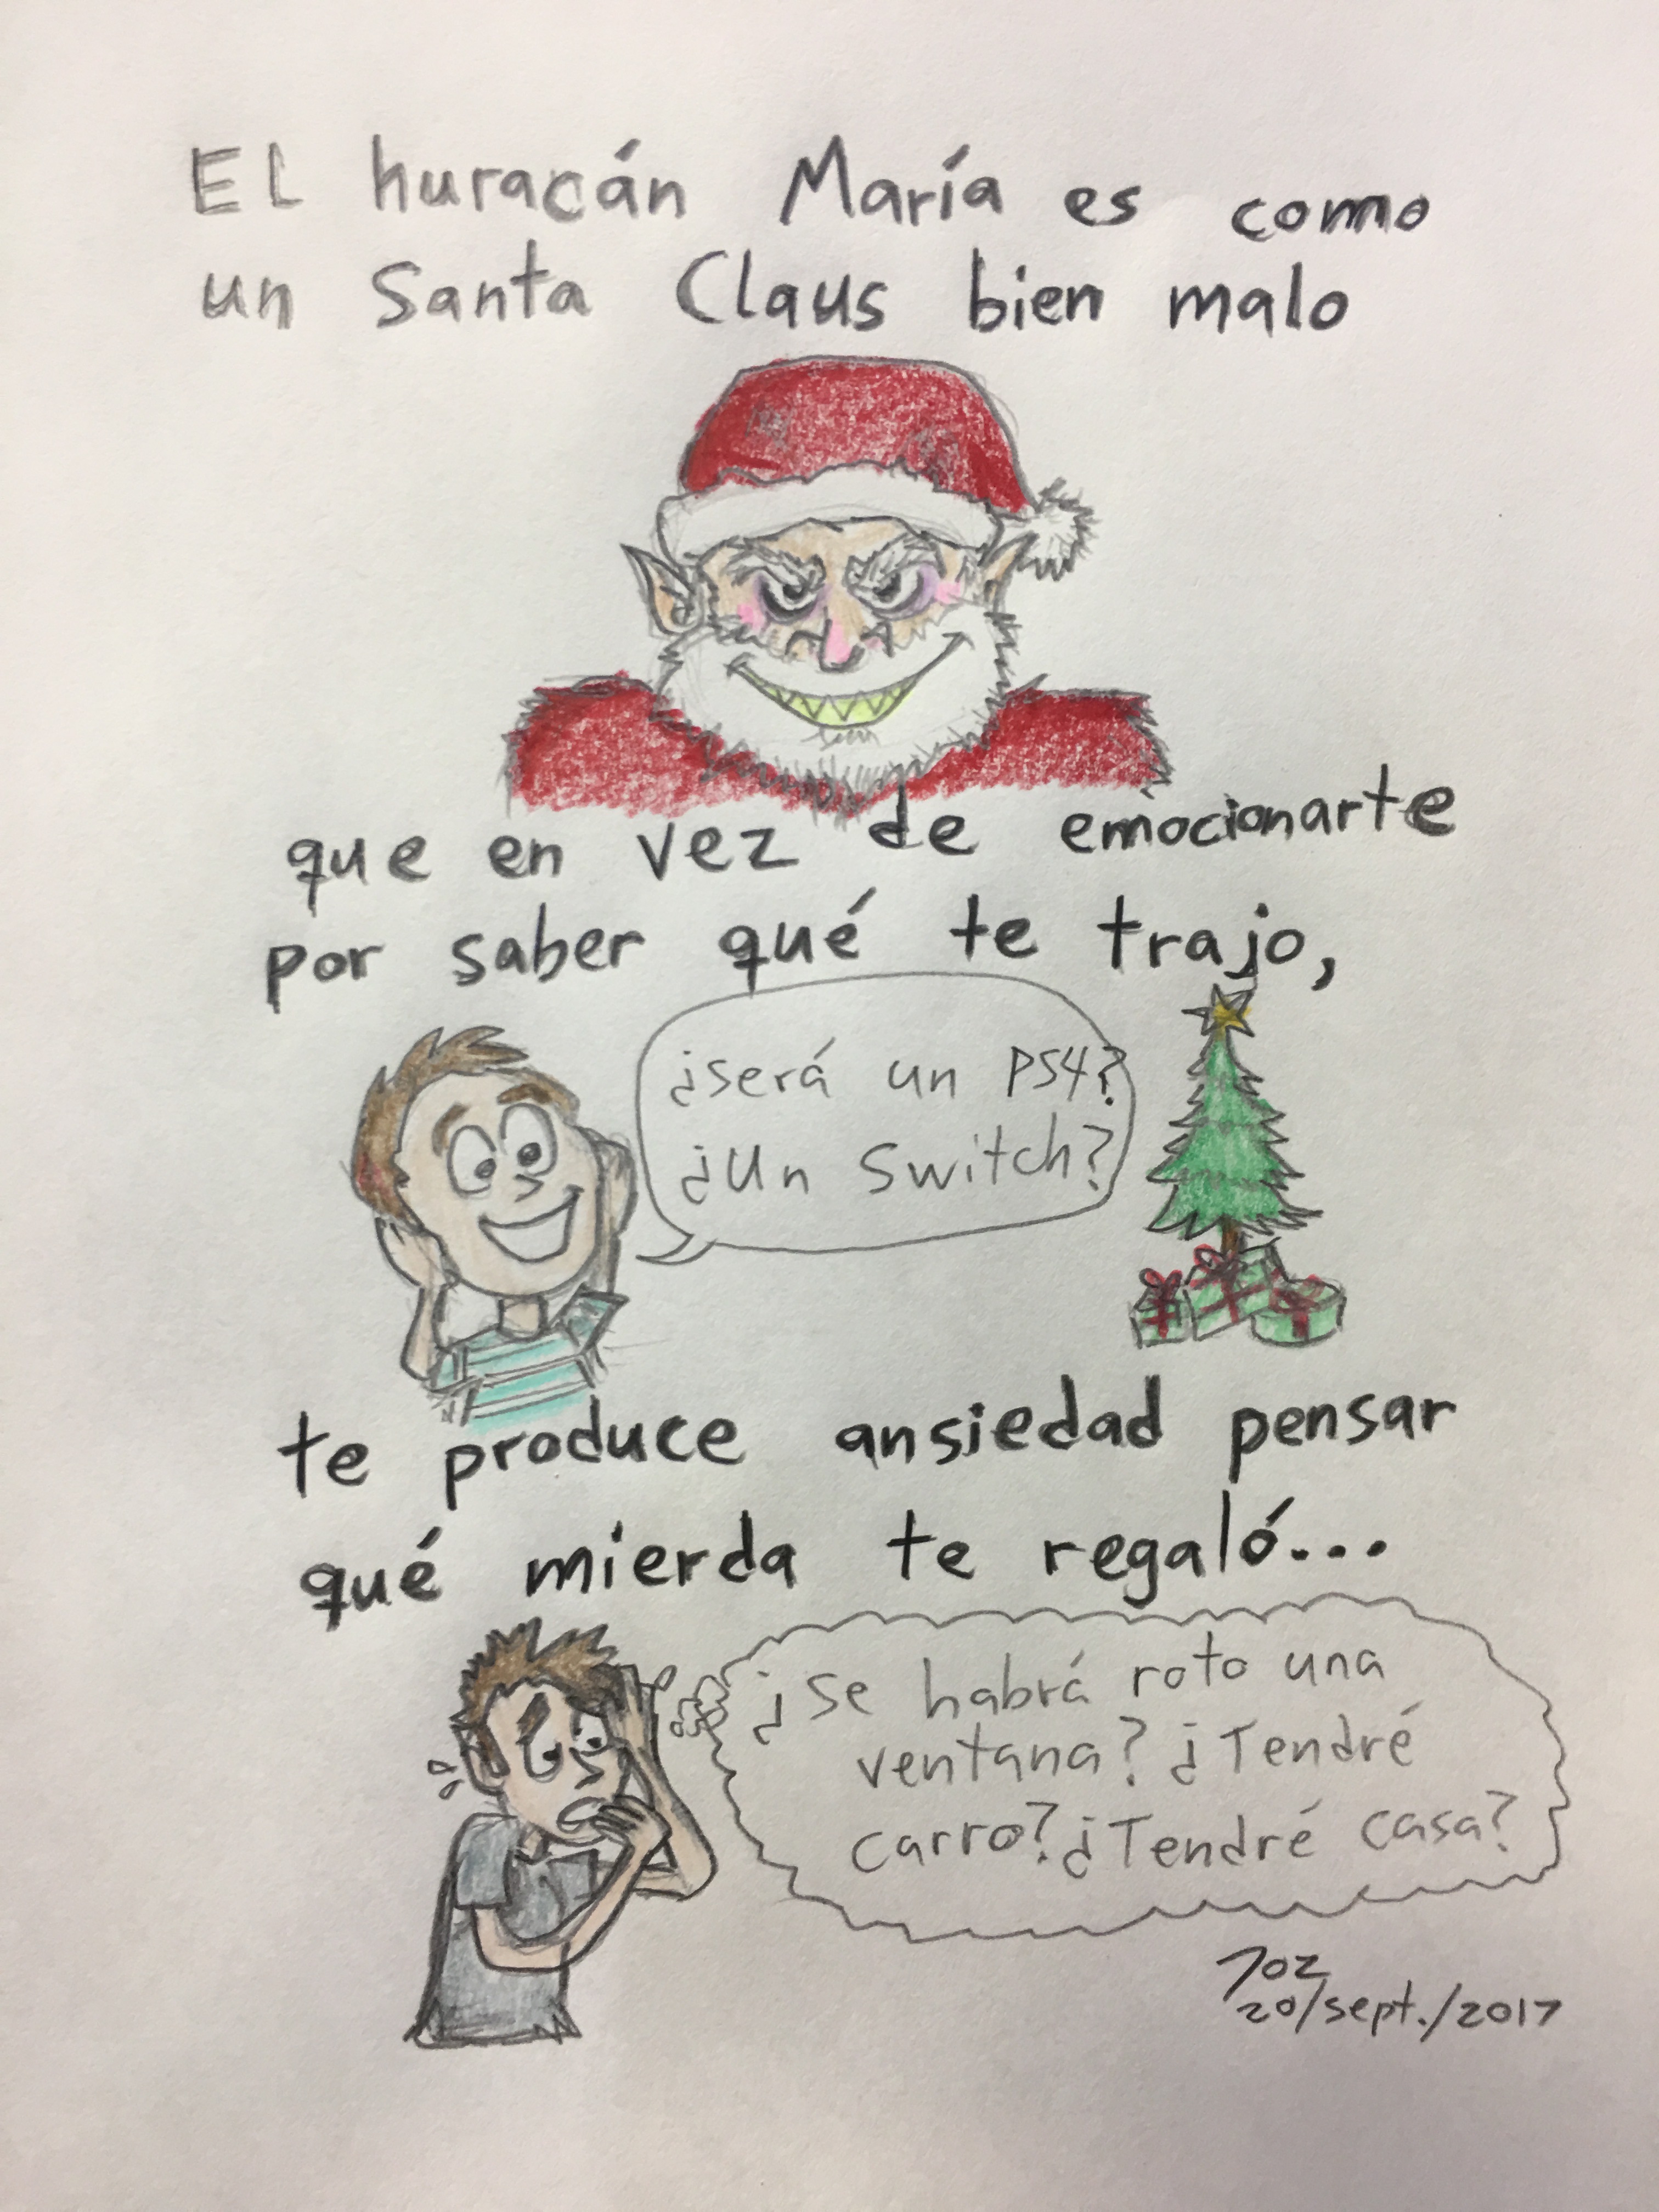 El huracán María es como
un Santa Claus bien malo
que en vez de emocionarte
por saber qué te trajo,
¿será un PS4?
¿Un Switch?
te produce ansiedad pensar
qué mierda te regaló...
¿Se habrá roto una
ventana? ¿Tendré
carro? ¿Tendré casa?
Joz
20/sept./2017